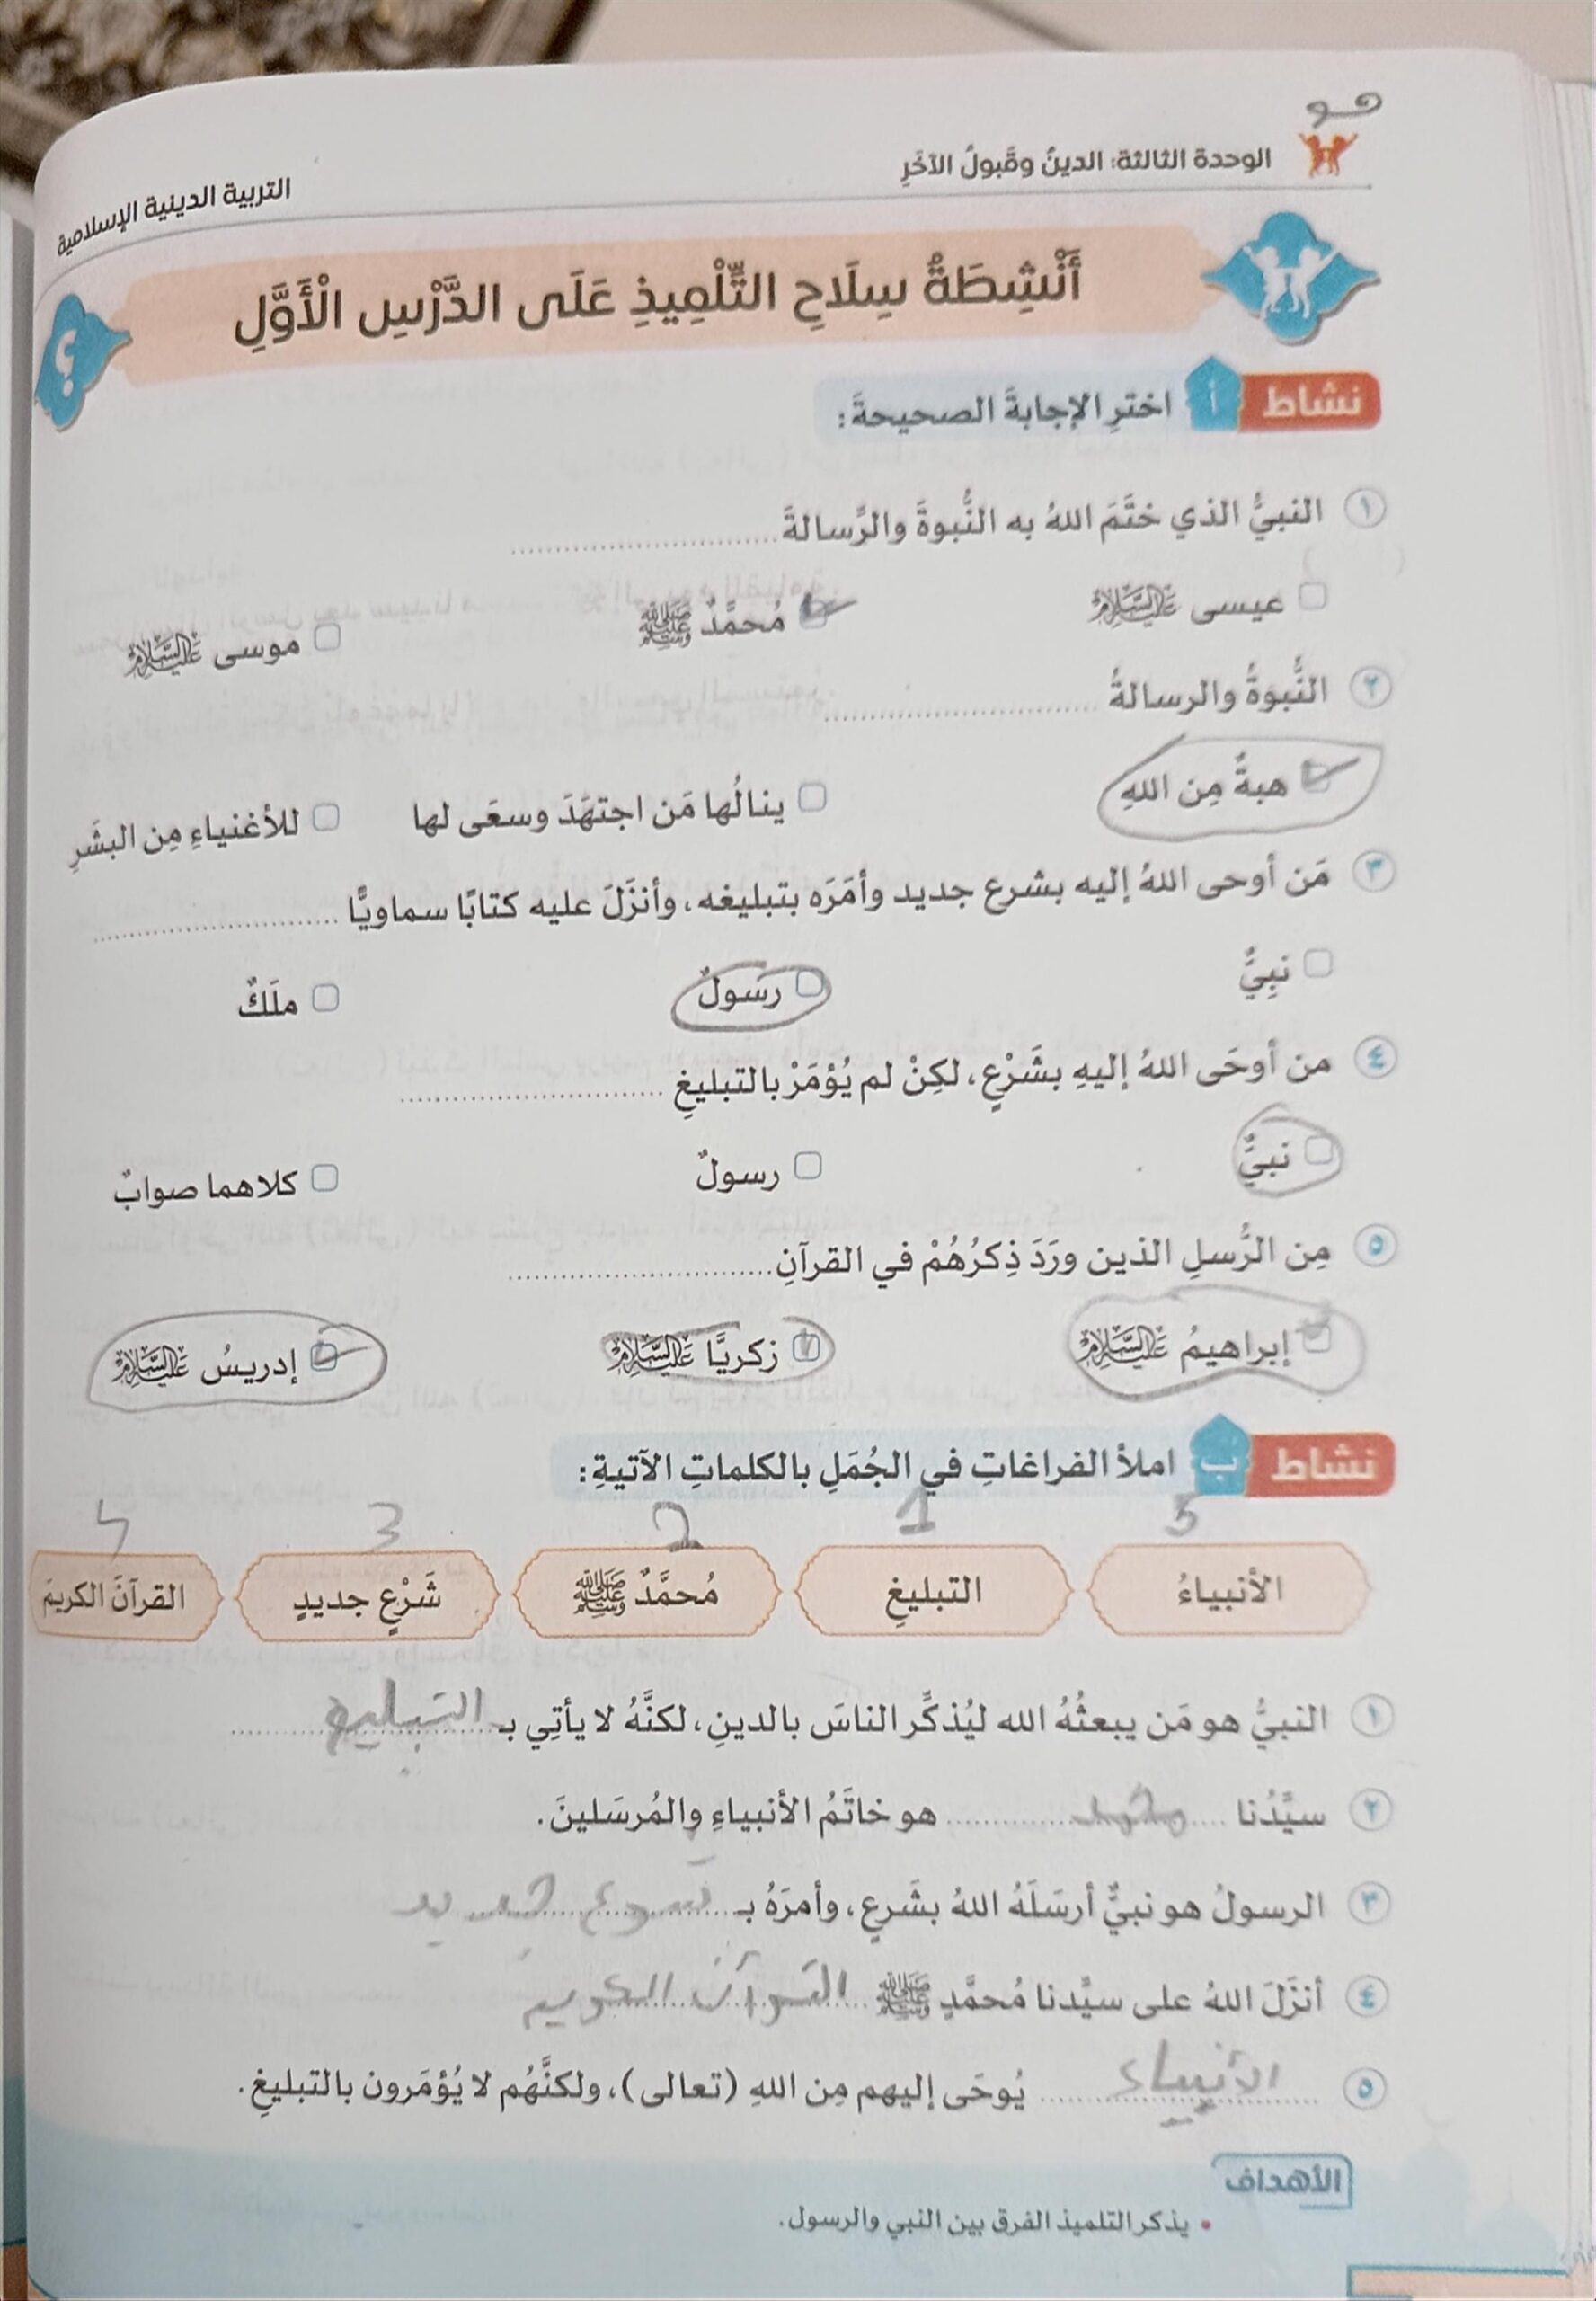 هو
الوحدة الثالثة: الدينُ وقَبولُ الآخَرِ
التربية الدينية الإسلامية
أَنْشِطَةُ سِلَاحِ التِّلْمِيذِ عَلَى الدَّرْسِ الْأَوَّلِ
؟
نشاط أ اخترِ الإجابةَ الصحيحةَ:
١ النبيُّ الذي ختَّمَ اللهُ به النُّبوةَ والرِّسالةَ
عيسى عَلَيْهِ السَّلَامُ مُحمَّدٌ ﷺ موسى عَلَيْهِ السَّلَامُ
٢ النُّبوةُ والرسالةُ
هبةٌ مِن اللهِ ينالُها مَن اجتهَدَ وسعَى لها للأغنياءِ مِن البشَرِ
٣ مَن أوحى اللهُ إليه بشرع جديد وأمَرَه بتبليغه، وأنزَلَ عليه كتابًا سماويًّا
نبِيٌّ رسَولٌ ملَكٌ
٤ من أوحَى اللهُ إليهِ بشَرْعٍ، لكِنْ لم يُؤمَرْ بالتبليغِ
نبيٌّ رسولٌ كلاهما صوابٌ
٥ مِن الرُّسلِ الذين ورَدَ ذِكرُهُمْ في القرآنِ
إبراهيمُ عَلَيْهِ السَّلَامُ زكريَّا عَلَيْهِ السَّلَامُ إدريسُ عَلَيْهِ السَّلَامُ
نشاط ب املأ الفراغاتِ في الجُمَلِ بالكلماتِ الآتيةِ:
5 1 2 3 4
الأنبياءُ التبليغِ مُحمَّدٌ ﷺ شَرْعٍ جديدٍ القرآنَ الكريمَ
١ النبيُّ هو مَن يبعثُهُ الله ليُذكِّر الناسَ بالدينِ، لكنَّهُ لا يأتِي بـ التبليغ
٢ سيَّدُنا محمد هو خاتَمُ الأنبياءِ والمُرسَلينَ.
٣ الرسولُ هو نبيٌّ أرسَلَهُ اللهُ بشَرعٍ، وأمرَهُ بـ شرع جديد
٤ أنزَلَ اللهُ على سيِّدنا مُحمَّدٍ ﷺ القرآن الكريم
٥ الأنبياء يُوحَى إليهم مِن اللهِ (تعالى)، ولكنَّهُم لا يُؤمَرون بالتبليغِ.
الأهداف
• يذكر التلميذ الفرق بين النبي والرسول.